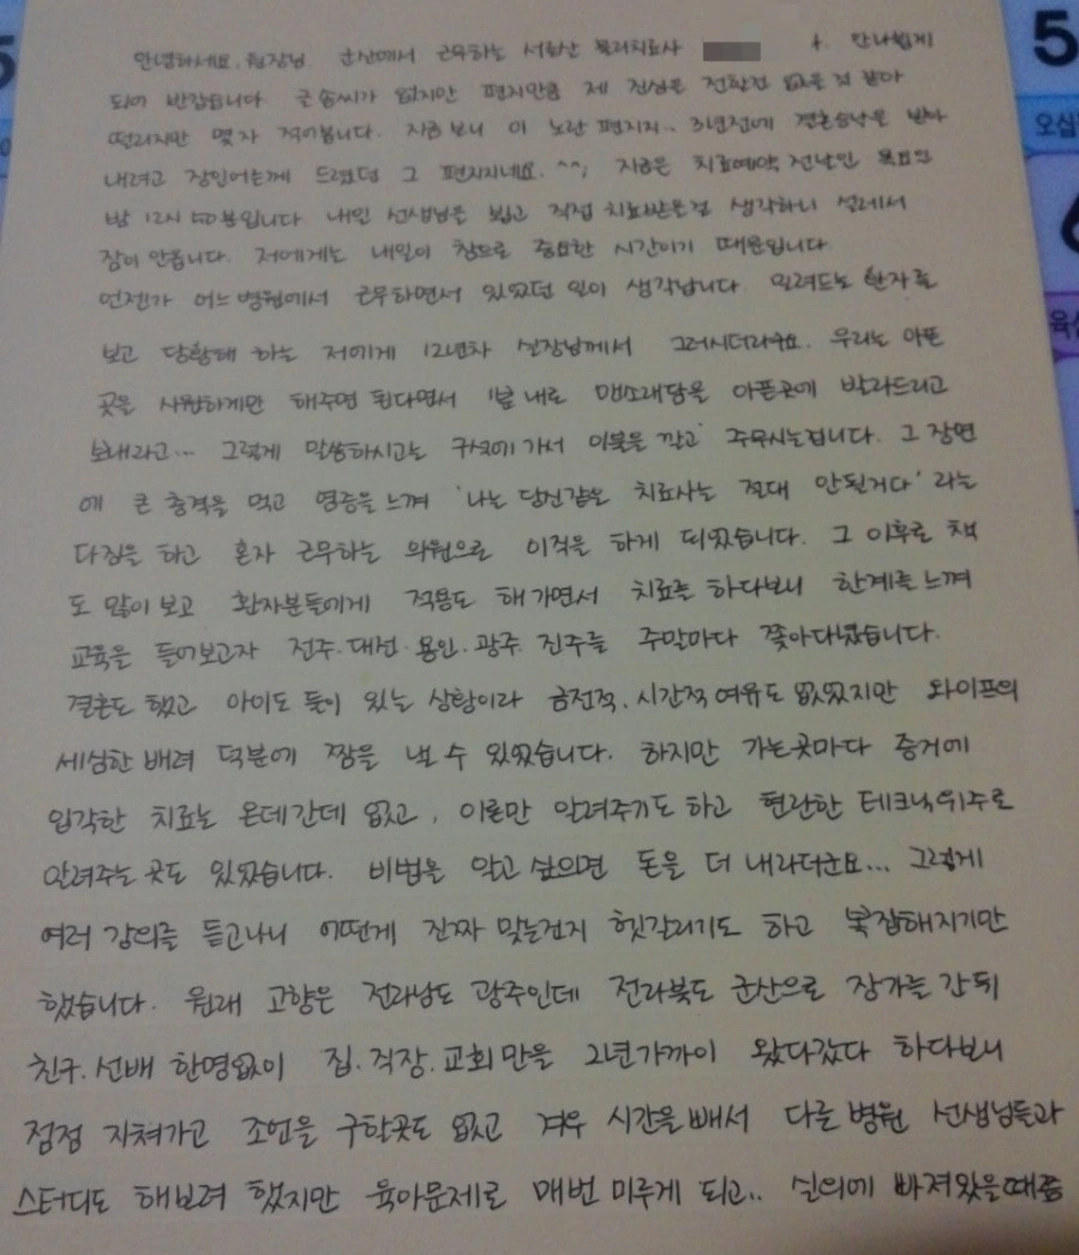 안녕하세요, 원장님. 군산에서 근무하는 서해안 물리치료사 입니다. 만나뵙게
되어 반갑습니다 큰 솜씨가 없지만 편지만큼 제 진심을 전할건 없을 것 같아
떨리지만 몇 자 적어봅니다. 지금 보니 이 노란 편지지.. 3년전에 결혼승낙을 받아
내려고 장인어른께 드렸던 그 편지지네요. ^^; 지금은 치료예약 전날인 목요일
밤 12시 50분입니다 내일 선생님을 뵙고 직접 치료받는걸 생각하니 설레서
잠이 안옵니다. 저에게는 내일이 참으로 중요한 시간이기 때문입니다
언젠가 어느 병원에서 근무하면서 있었던 일이 생각납니다 밀려드는 환자를
보고 당황해 하는 저에게 12년차 실장님께서 그러시더라구요. 우리는 아픈
곳을 시원하게만 해주면 된다면서 맨소래담을 아픈곳에 발라드리고
보내라고... 그렇게 말씀하시고는 구석에 가서 이불을 깔고 주무시는겁니다. 그 장면
에 큰 충격을 먹고 염증을 느껴 '나는 당신같은 치료사는 절대 안될거다' 라는
다짐을 하고 혼자 근무하는 의원으로 이직을 하게 되었습니다. 그 이후로 책
도 많이 보고 환자분들에게 적용도 해가면서 치료를 하다보니 한계를 느껴
교육을 들어보고자 전주.대전.용인.광주.진주를 주말마다 쫓아다녔습니다.
결혼도 했고 아이도 둘이 있는 상황이라 금전적, 시간적 여유도 없었지만 와이프의
세심한 배려 덕분에 짬을 낼 수 있었습니다. 하지만 가는곳마다 증거에
입각한 치료는 온데간데 없고, 이론만 알려주기도 하고 현란한 테크닉위주로
알려주는 곳도 있었습니다. 비법을 알고 싶으면 돈을 더 내라더군요... 그렇게
여러 강의를 듣고나니 어떤게 진짜 맞는건지 헷갈리기도 하고 복잡해지기만
했습니다. 원래 고향은 전라남도 광주인데 전라북도 군산으로 장가를 간뒤
친구.선배 한명없이 집.직장.교회만을 2년가까이 왔다갔다 하다보니
점점 지쳐가고 조언을 구할곳도 없고 겨우 시간을 빼서 다른 병원 선생님들과
스터디도 해보려 했지만 육아문제로 매번 미루게 되고.. 실의에 빠져있을때쯤
5
오십